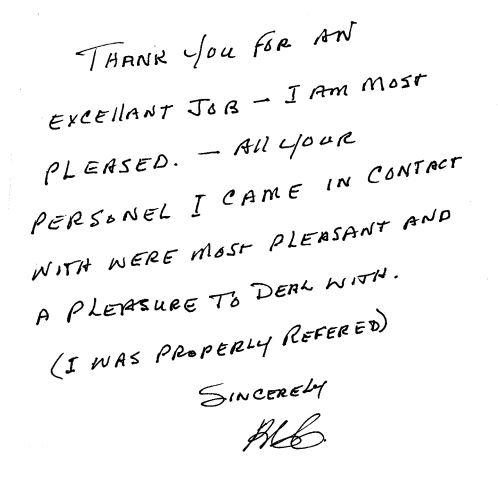 THANK YOU FOR AN
EXCELLANT JOB - I AM MOST
PLEASED. - ALL YOUR
PERSONEL I CAME IN CONTACT
WITH WERE MOST PLEASANT AND
A PLEASURE TO DEAL WITH.
(I WAS PROPERLY REFERED)
SINCERELY